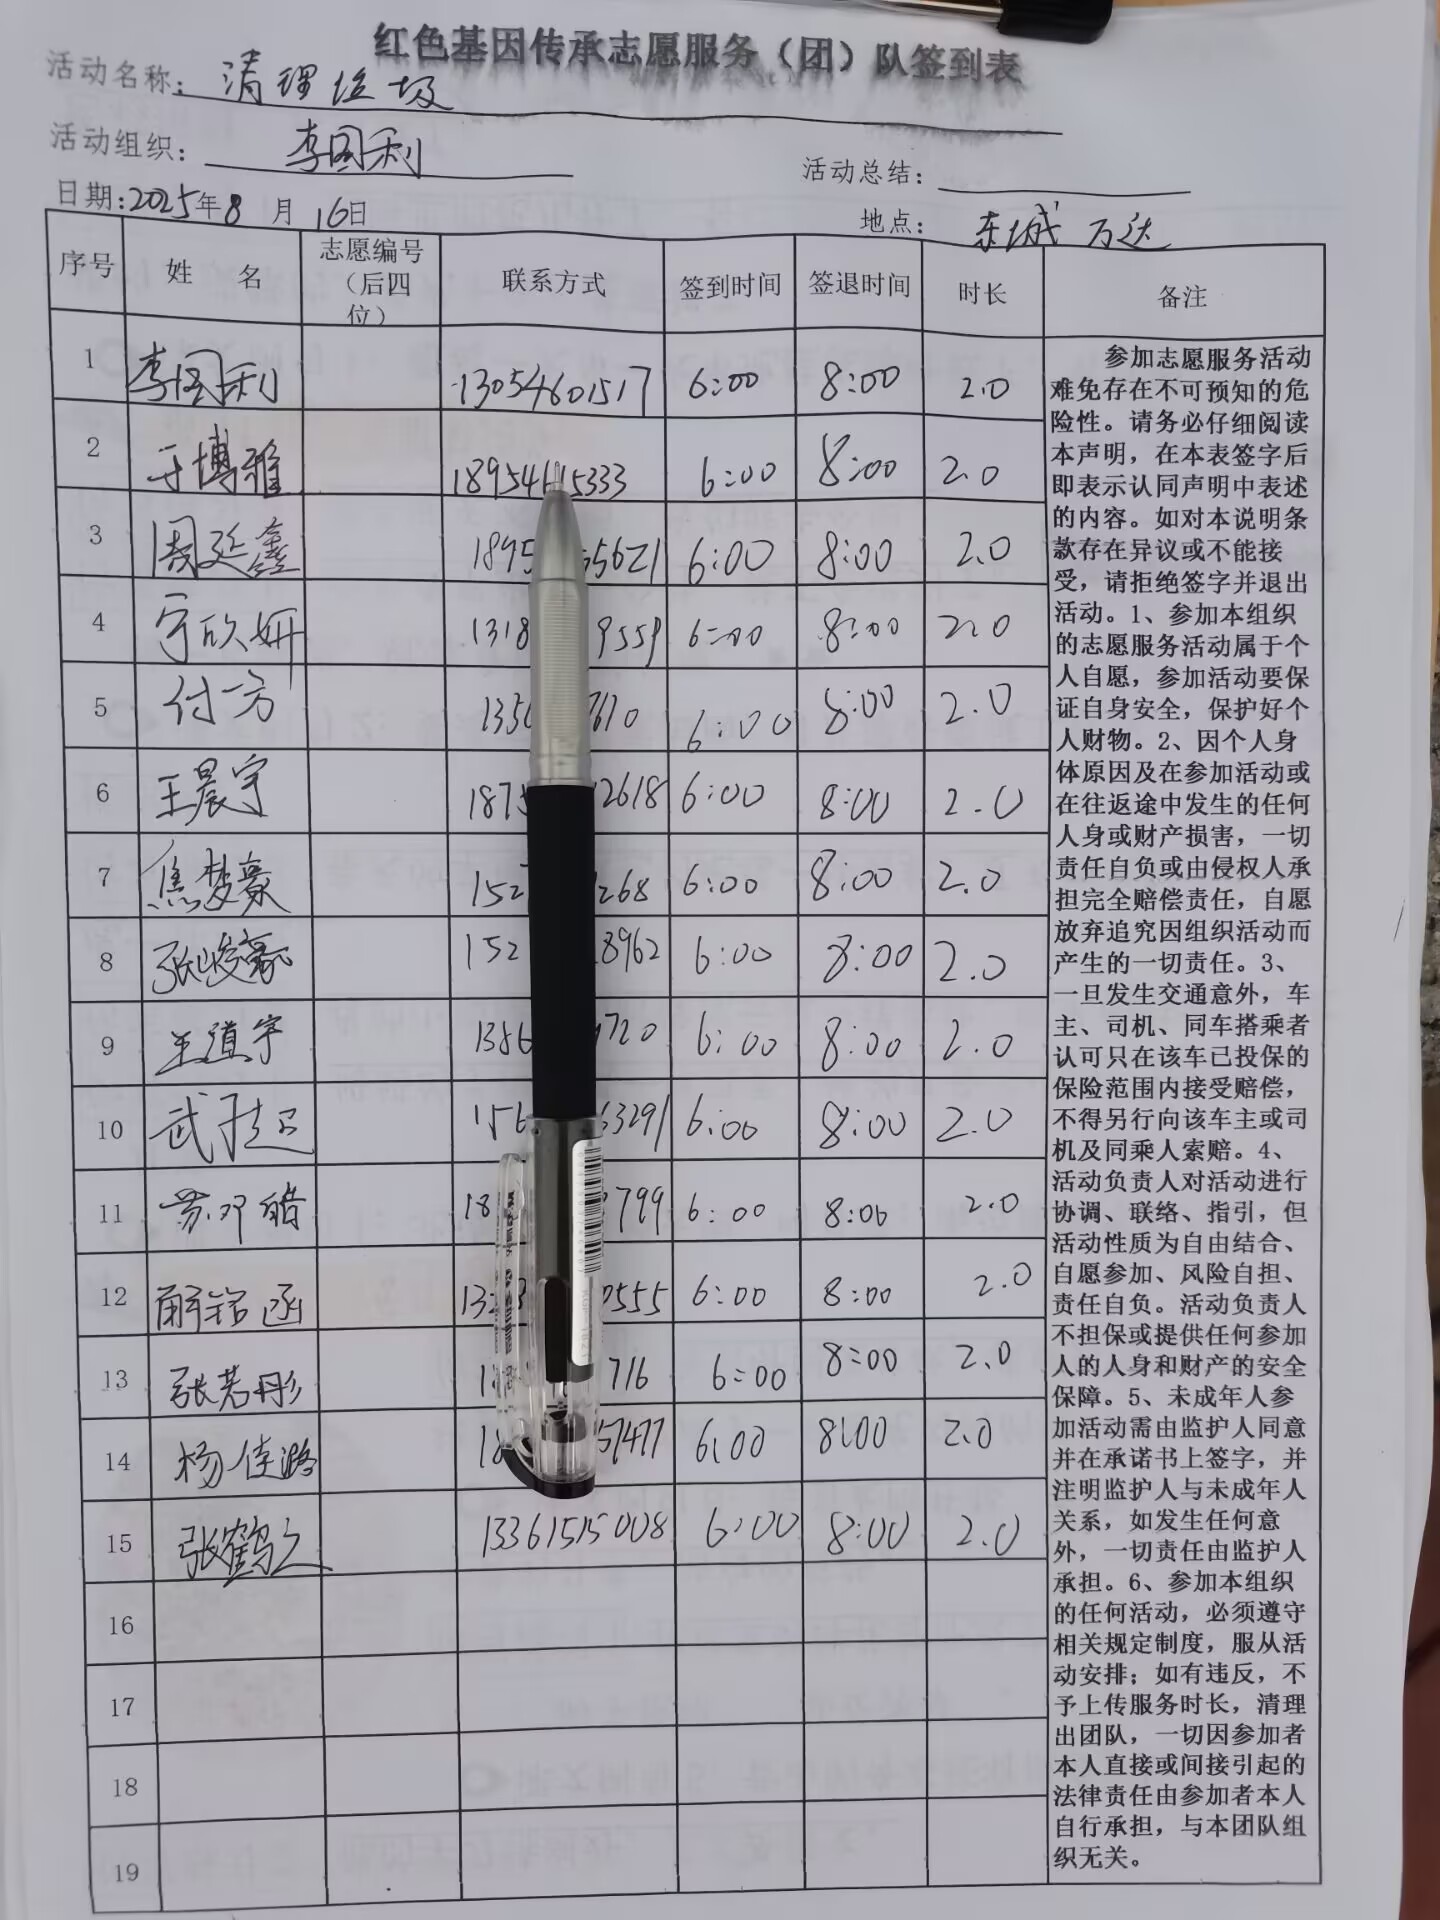 红色基因传承志愿服务（团）队签到表
活动名称：清理垃圾
活动组织：李国利
活动总结：
日期:2025年8月16日
地点：东城万达
序号 姓名 志愿编号（后四位） 联系方式 签到时间 签退时间 时长 备注
1 李国利 13054601517 6:00 8:00 2.0
2 于博雅 189546 5333 6:00 8:00 2.0
3 周延鑫 1895 55621 6:00 8:00 2.0
4 宁欣妍 1318 9559 6:00 8:00 2.0
5 付一方 1356 7610 6:00 8:00 2.0
6 王晨宇 1875 2618 6:00 8:00 2.0
7 焦梦豪 152 268 6:00 8:00 2.0
8 张峻豪 152 8962 6:00 8:00 2.0
9 王道宇 1386 9720 6:00 8:00 2.0
10 武 156 63291 6:00 8:00 2.0
11 苏邓皓 18 799 6:00 8:00 2.0
12 解铭函 13 0555 6:00 8:00 2.0
13 张若彤 18 716 6:00 8:00 2.0
14 杨佳潞 18 57477 6:00 8:00 2.0
15 张鹤之 13361515008 6:00 8:00 2.0
16
17
18
19
参加志愿服务活动
难免存在不可预知的危
险性。请务必仔细阅读
本声明，在本表签字后
即表示认同声明中表述
的内容。如对本说明条
款存在异议或不能接
受，请拒绝签字并退出
活动。1、参加本组织
的志愿服务活动属于个
人自愿，参加活动要保
证自身安全，保护好个
人财物。2、因个人身
体原因及在参加活动或
在往返途中发生的任何
人身或财产损害，一切
责任自负或由侵权人承
担完全赔偿责任，自愿
放弃追究因组织活动而
产生的一切责任。3、
一旦发生交通意外，车
主、司机、同车搭乘者
认可只在该车已投保的
保险范围内接受赔偿，
不得另行向该车主或司
机及同乘人索赔。4、
活动负责人对活动进行
协调、联络、指引，但
活动性质为自由结合、
自愿参加、风险自担、
责任自负。活动负责人
不担保或提供任何参加
人的人身和财产的安全
保障。5、未成年人参
加活动需由监护人同意
并在承诺书上签字，并
注明监护人与未成年人
关系，如发生任何意
外，一切责任由监护人
承担。6、参加本组织
的任何活动，必须遵守
相关规定制度，服从活
动安排；如有违反，不
予上传服务时长，清理
出团队，一切因参加者
本人直接或间接引起的
法律责任由参加者本人
自行承担，与本团队组
织无关。